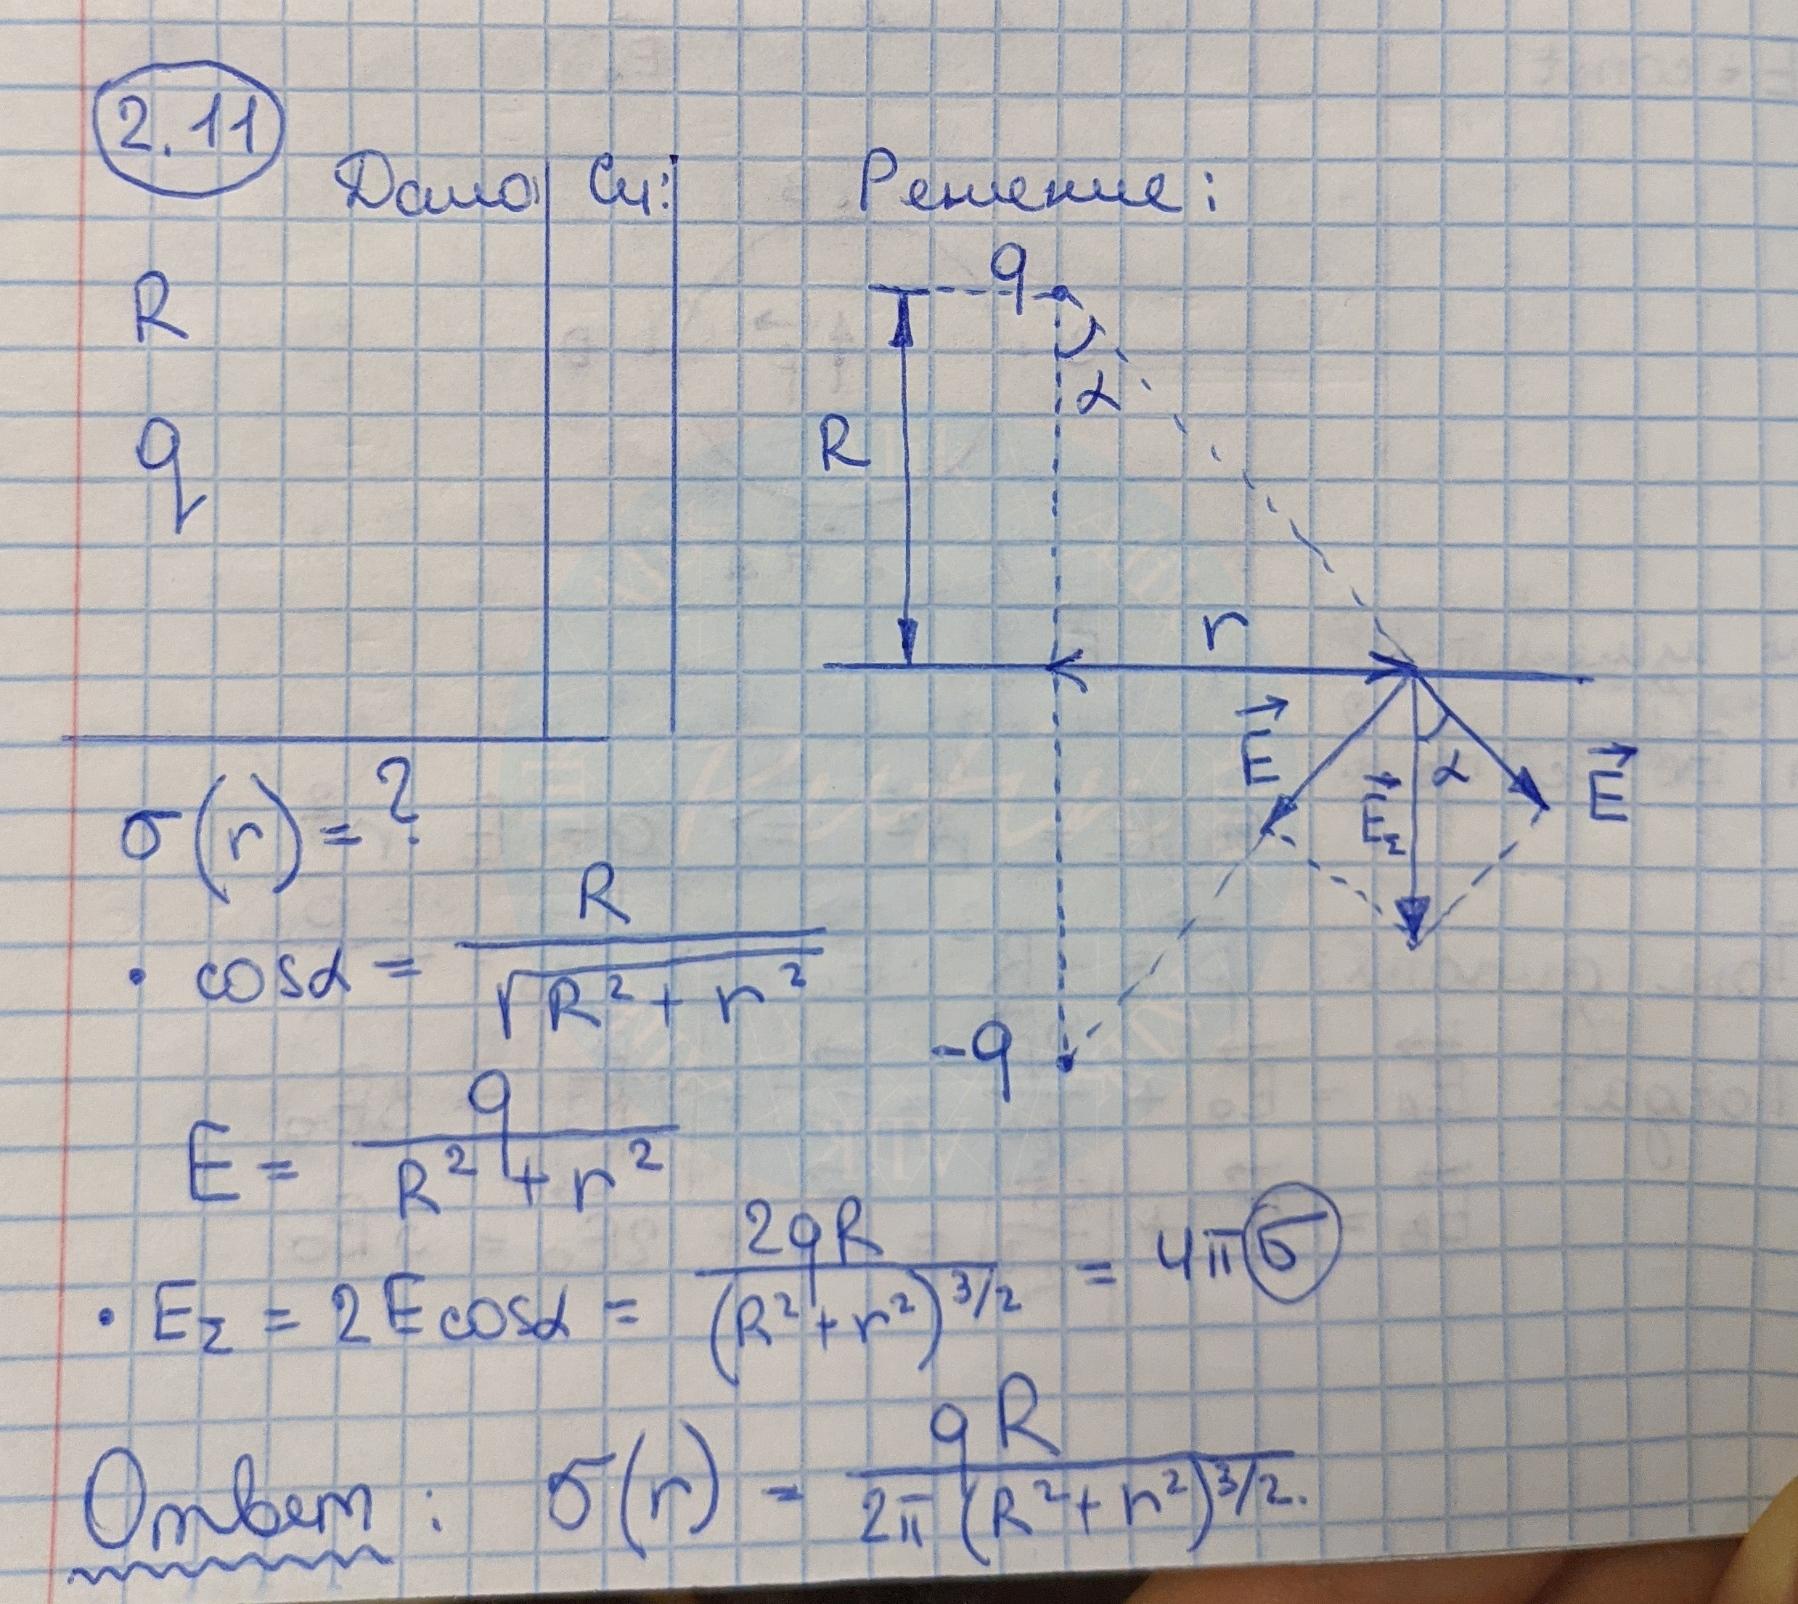 2.11
Дано Си: Решение:
R
q
σ(r) = ?
q
α
R
r
E⃗ E⃗_Σ α E⃗
-q
• cosα = R / √(R² + r²)
E = q / (R² + r²)
• E_Σ = 2Ecosα = 2qR / (R² + r²)^3/2 = 4πσ
Ответ: σ(r) = qR / 2π(R² + r²)^3/2.